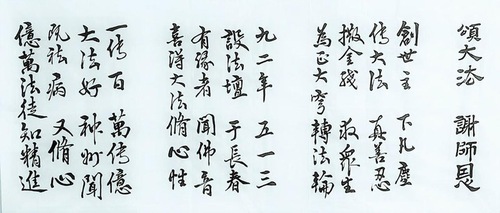 頌大法 謝師恩
創世主 下凡塵
传大法 真善忍
救眾生
為正大穹轉法輪
九二年 五一三
設法壇 于長春
有緣者 聞佛音
喜得大法脩心性
一传百 萬传億
大法好 神州聞
既祛病 又脩心
億萬法徒知精進